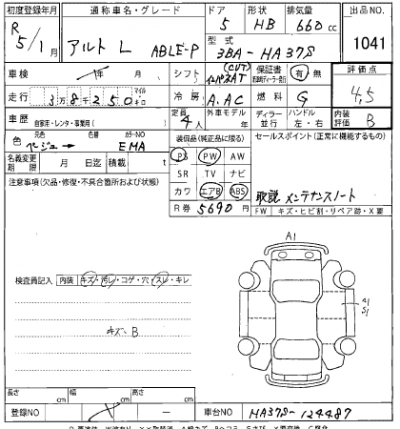 初度登録年月 通称車名・グレード ドア 形状 排気量 出品NO.
R 5/1月 アルト L ABLE-P 5 HB 660cc 1041
型式 3BA-HA37S
車検 年 月 シフト (CVT) 保証書 有・無 評価点
走行 38250 マイル キロ 冷房 A.AC 燃料 G 4,5
車歴 自家用・レンタ・事業用( ) 定員 4人 外車モデル 年 ディーラー 並行 ハンドル 左・右 内装評価 B
色 元色 ベージュ→ 色替 カラーNO EMA 装備品(純正品に限る) セールスポイント(正常に機能するもの)
名義変更期限 月 日迄 積載 t PS PW AW
SR TV ナビ
注意事項(欠品・修復・不具合箇所および状態) カワ エアB ABS 取説 メンテナンスノート
R券 5690 FW キズ・ヒビ割・リペア跡・X要
A1
検査員記入 内装 キズ・汚レ・コゲ・穴・スレ・キレ
A1
S1
キズ-B
長さ cm 幅 cm 高さ cm
登録NO - 車台NO HA37S-124487